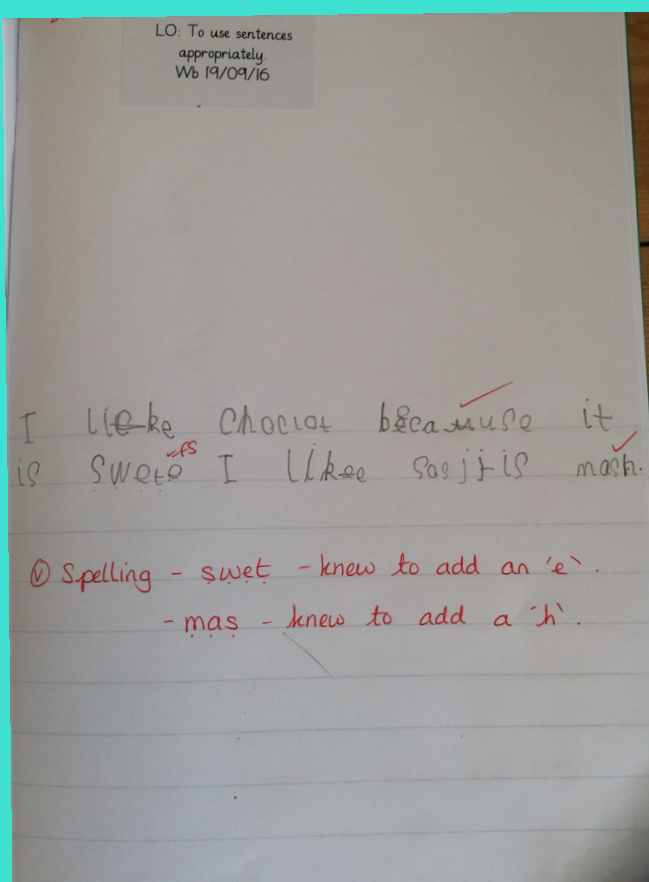 LO: To use sentences
appropriately.
Wb 19/09/16
I lieke choclot because it
is swete FS I likee sosjis mash.
Ⓥ Spelling - swet - knew to add an 'e'.
- mas - knew to add a 'h'.